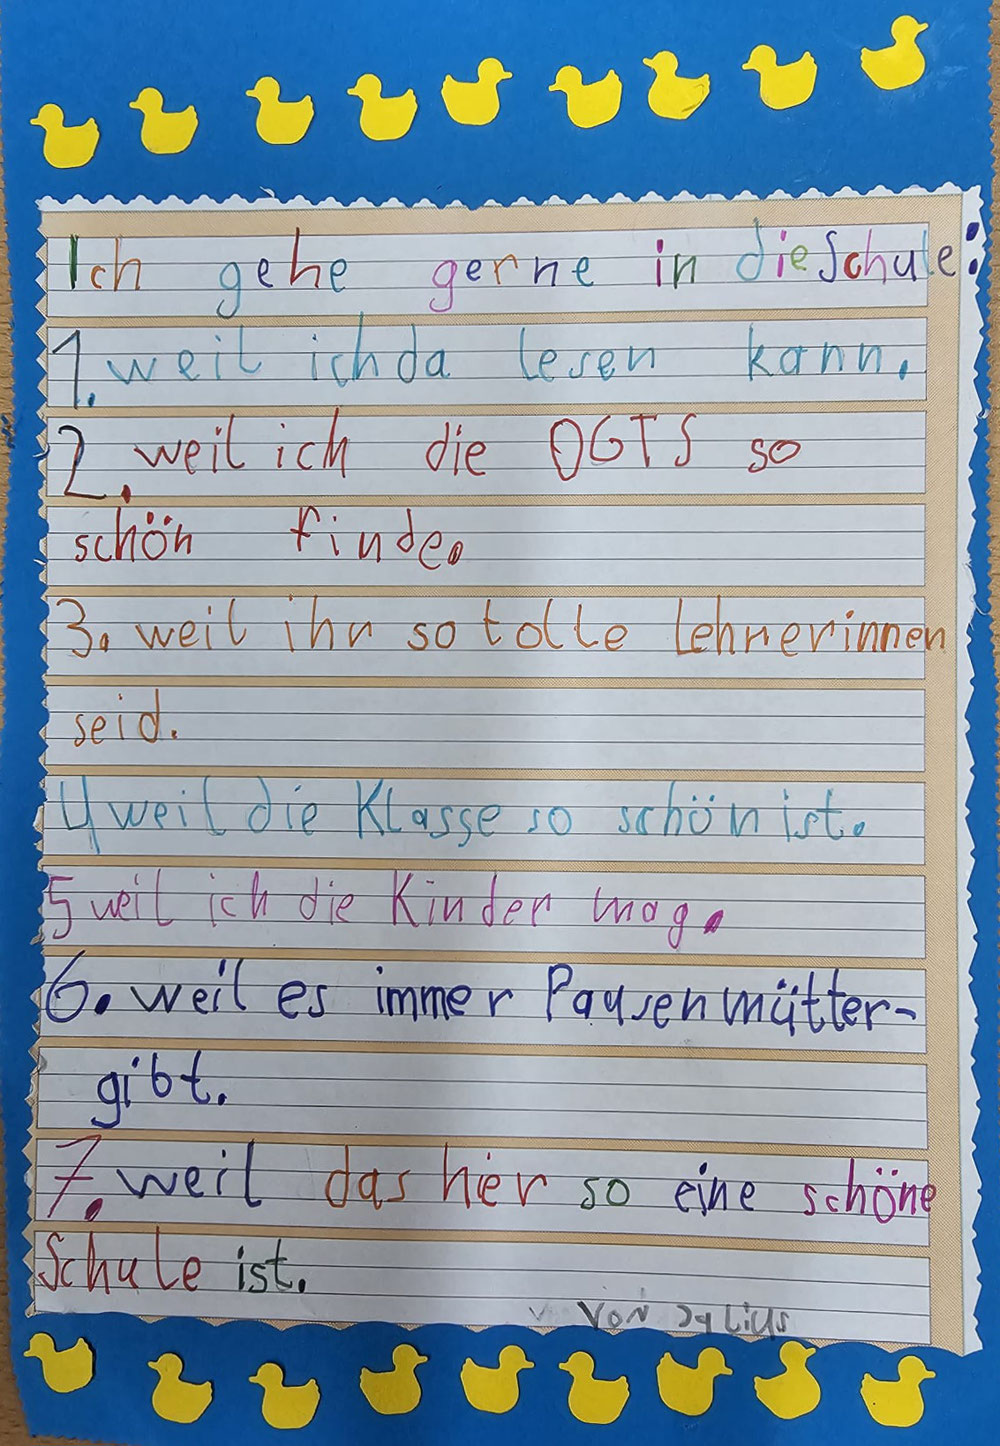 Ich gehe gerne in die Schule:
1. weil ich da lesen kann.
2. weil ich die OGTS so
schön finde.
3. weil ihr so tolle Lehrerinnen
seid.
4 weil die Klasse so schön ist.
5 weil ich die Kinder mag.
6. weil es immer Pausenmütter-
gibt.
7. weil das hier so eine schöne
Schule ist.
VON Julius